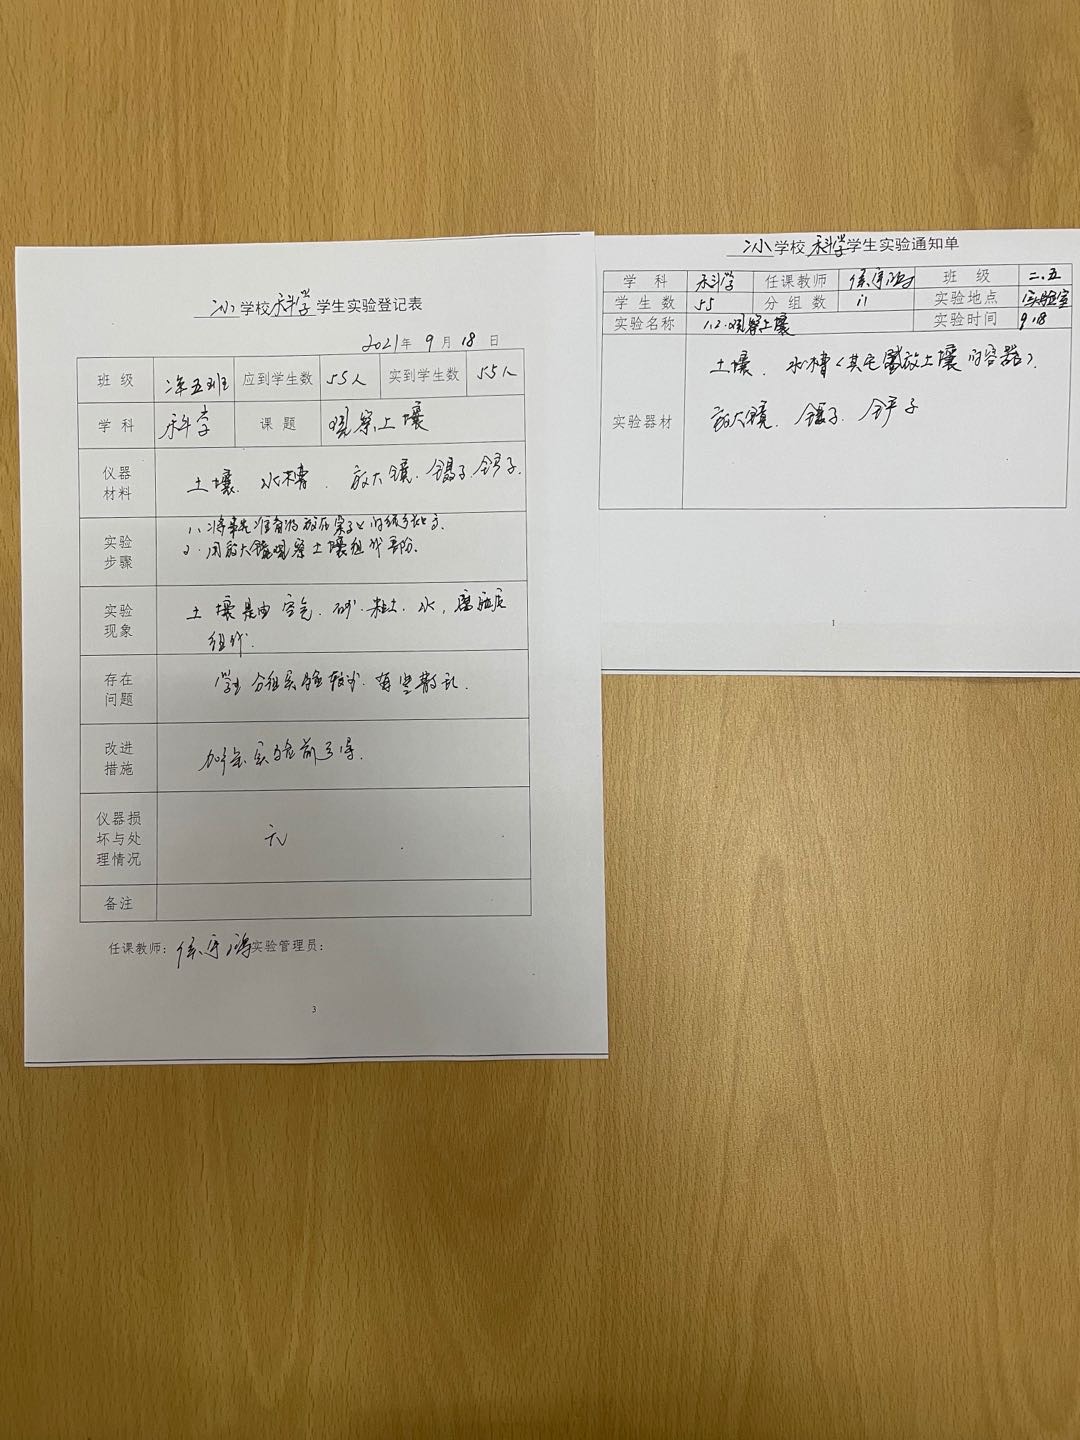 小学校科学学生实验登记表
2021年 9月 18日
班级 二年五班 应到学生数 55人 实到学生数 55人
学科 科学 课题 观察土壤
仪器材料 土壤、水槽、放大镜、镊子、铲子.
实验步骤 1、将事先准备的放在桌子上的
2、用放大镜观察土壤组成部分。
实验现象 土壤是由空气、砂、粘土、水、腐殖质
组成.
存在问题 学生分组实验较少、有些散乱.
改进措施 加强实验前
仪器损坏与处理情况 无
备注
任课教师: 实验管理员:
3
小学校科学学生实验通知单
学科 科学 任课教师 班级 二.五
学生数 55 分组数 11 实验地点 实验室
实验名称 1.2.观察土壤 实验时间 9.18
实验器材 土壤、水槽(其它放土壤的容器)、
放大镜、镊子、铲子
1